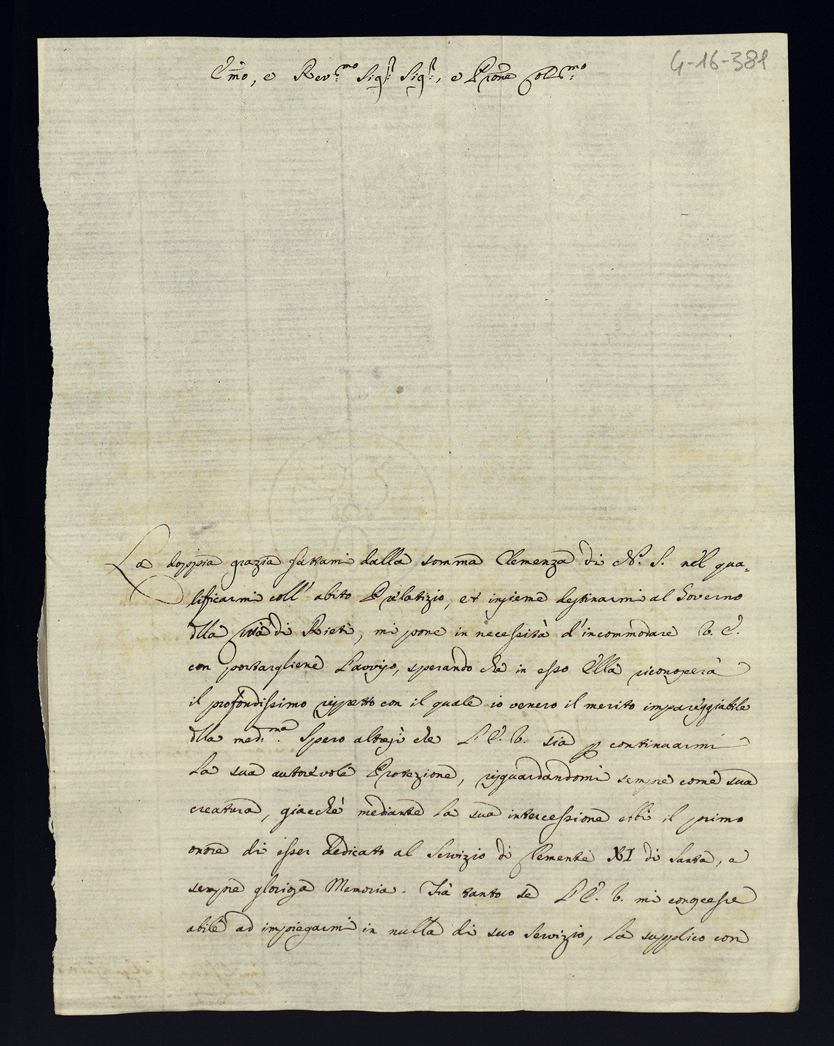 G-16-381
E.mo, e Rev.mo Sig.r Sig.r, e Prone Col.mo
La doppia grazia fattami dalla somma Clemenza di N. S. nel qua-
lificarmi coll' abito Prelatizio, et insieme destinarmi al Governo
dlla Città di Rieti, mi pone in necessità d'incommodare V. E.
con portargliene l'avviso, sperando che in esso Ella riconoscerà
il profondissimo rispetto con il quale io venero il merito impareggiabile
dlla med.ma. Spero altresì che L'E. V. sia p continuarmi
la sua autorevole Protezione, risguardandomi sempre come sua
creatura, giacchè mediante la sua intercessione ebbi il primo
onore di esser dedicato al Servizio di Clemente XI di Santa, e
sempre glorioza Memoria. Frà tanto se L'E. V. mi conoscesse
abile ad impiegarmi in nulla di suo Servizio, la supplico con